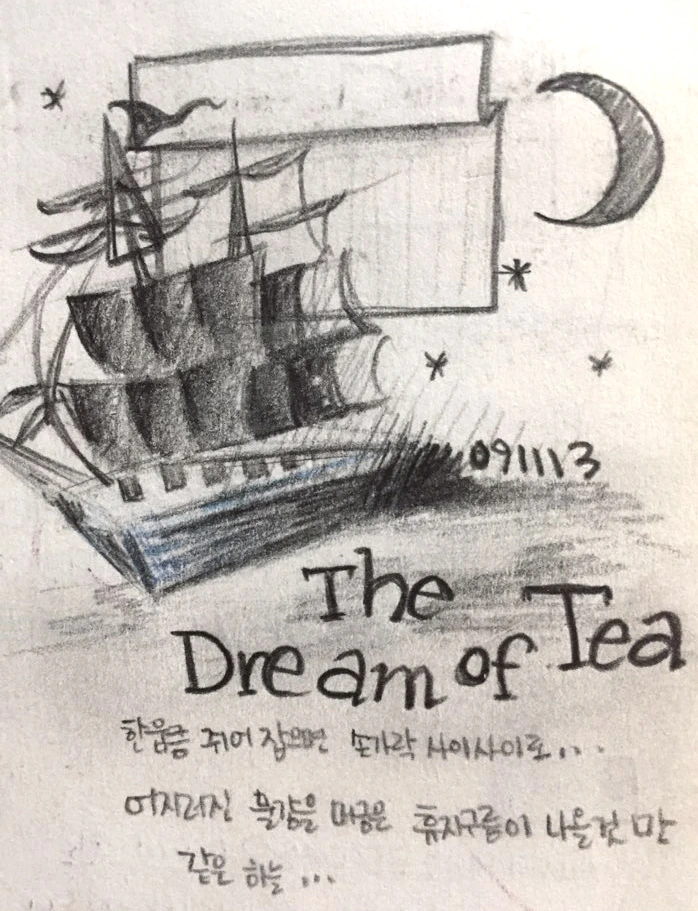 091113
The
Dream of Tea
한움큼 쥐어 잡으면 손가락 사이사이로...
어지러진 물감을 머금은 휴지구름이 나올것 만
같은 하늘...